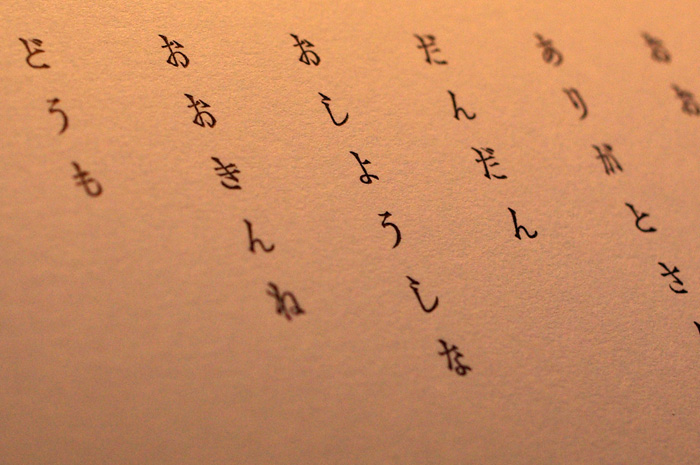 ありがとさ
だんだん
おしようしな
おおきんね
どうも